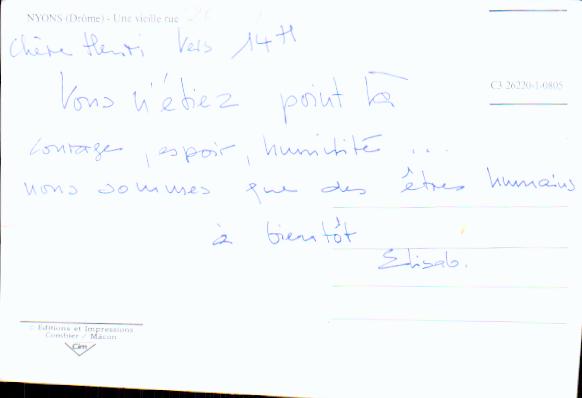 NYONS (Drôme) - Une vieille rue
Chère Henri Vers 14H
C3 26220-1-0805
Vous n'étiez point là
courage, espoir, humilité ...
nous sommes que des êtres humains
à bientôt
Elisab.
© Editions et Impressions
Combier - Macon
Cim